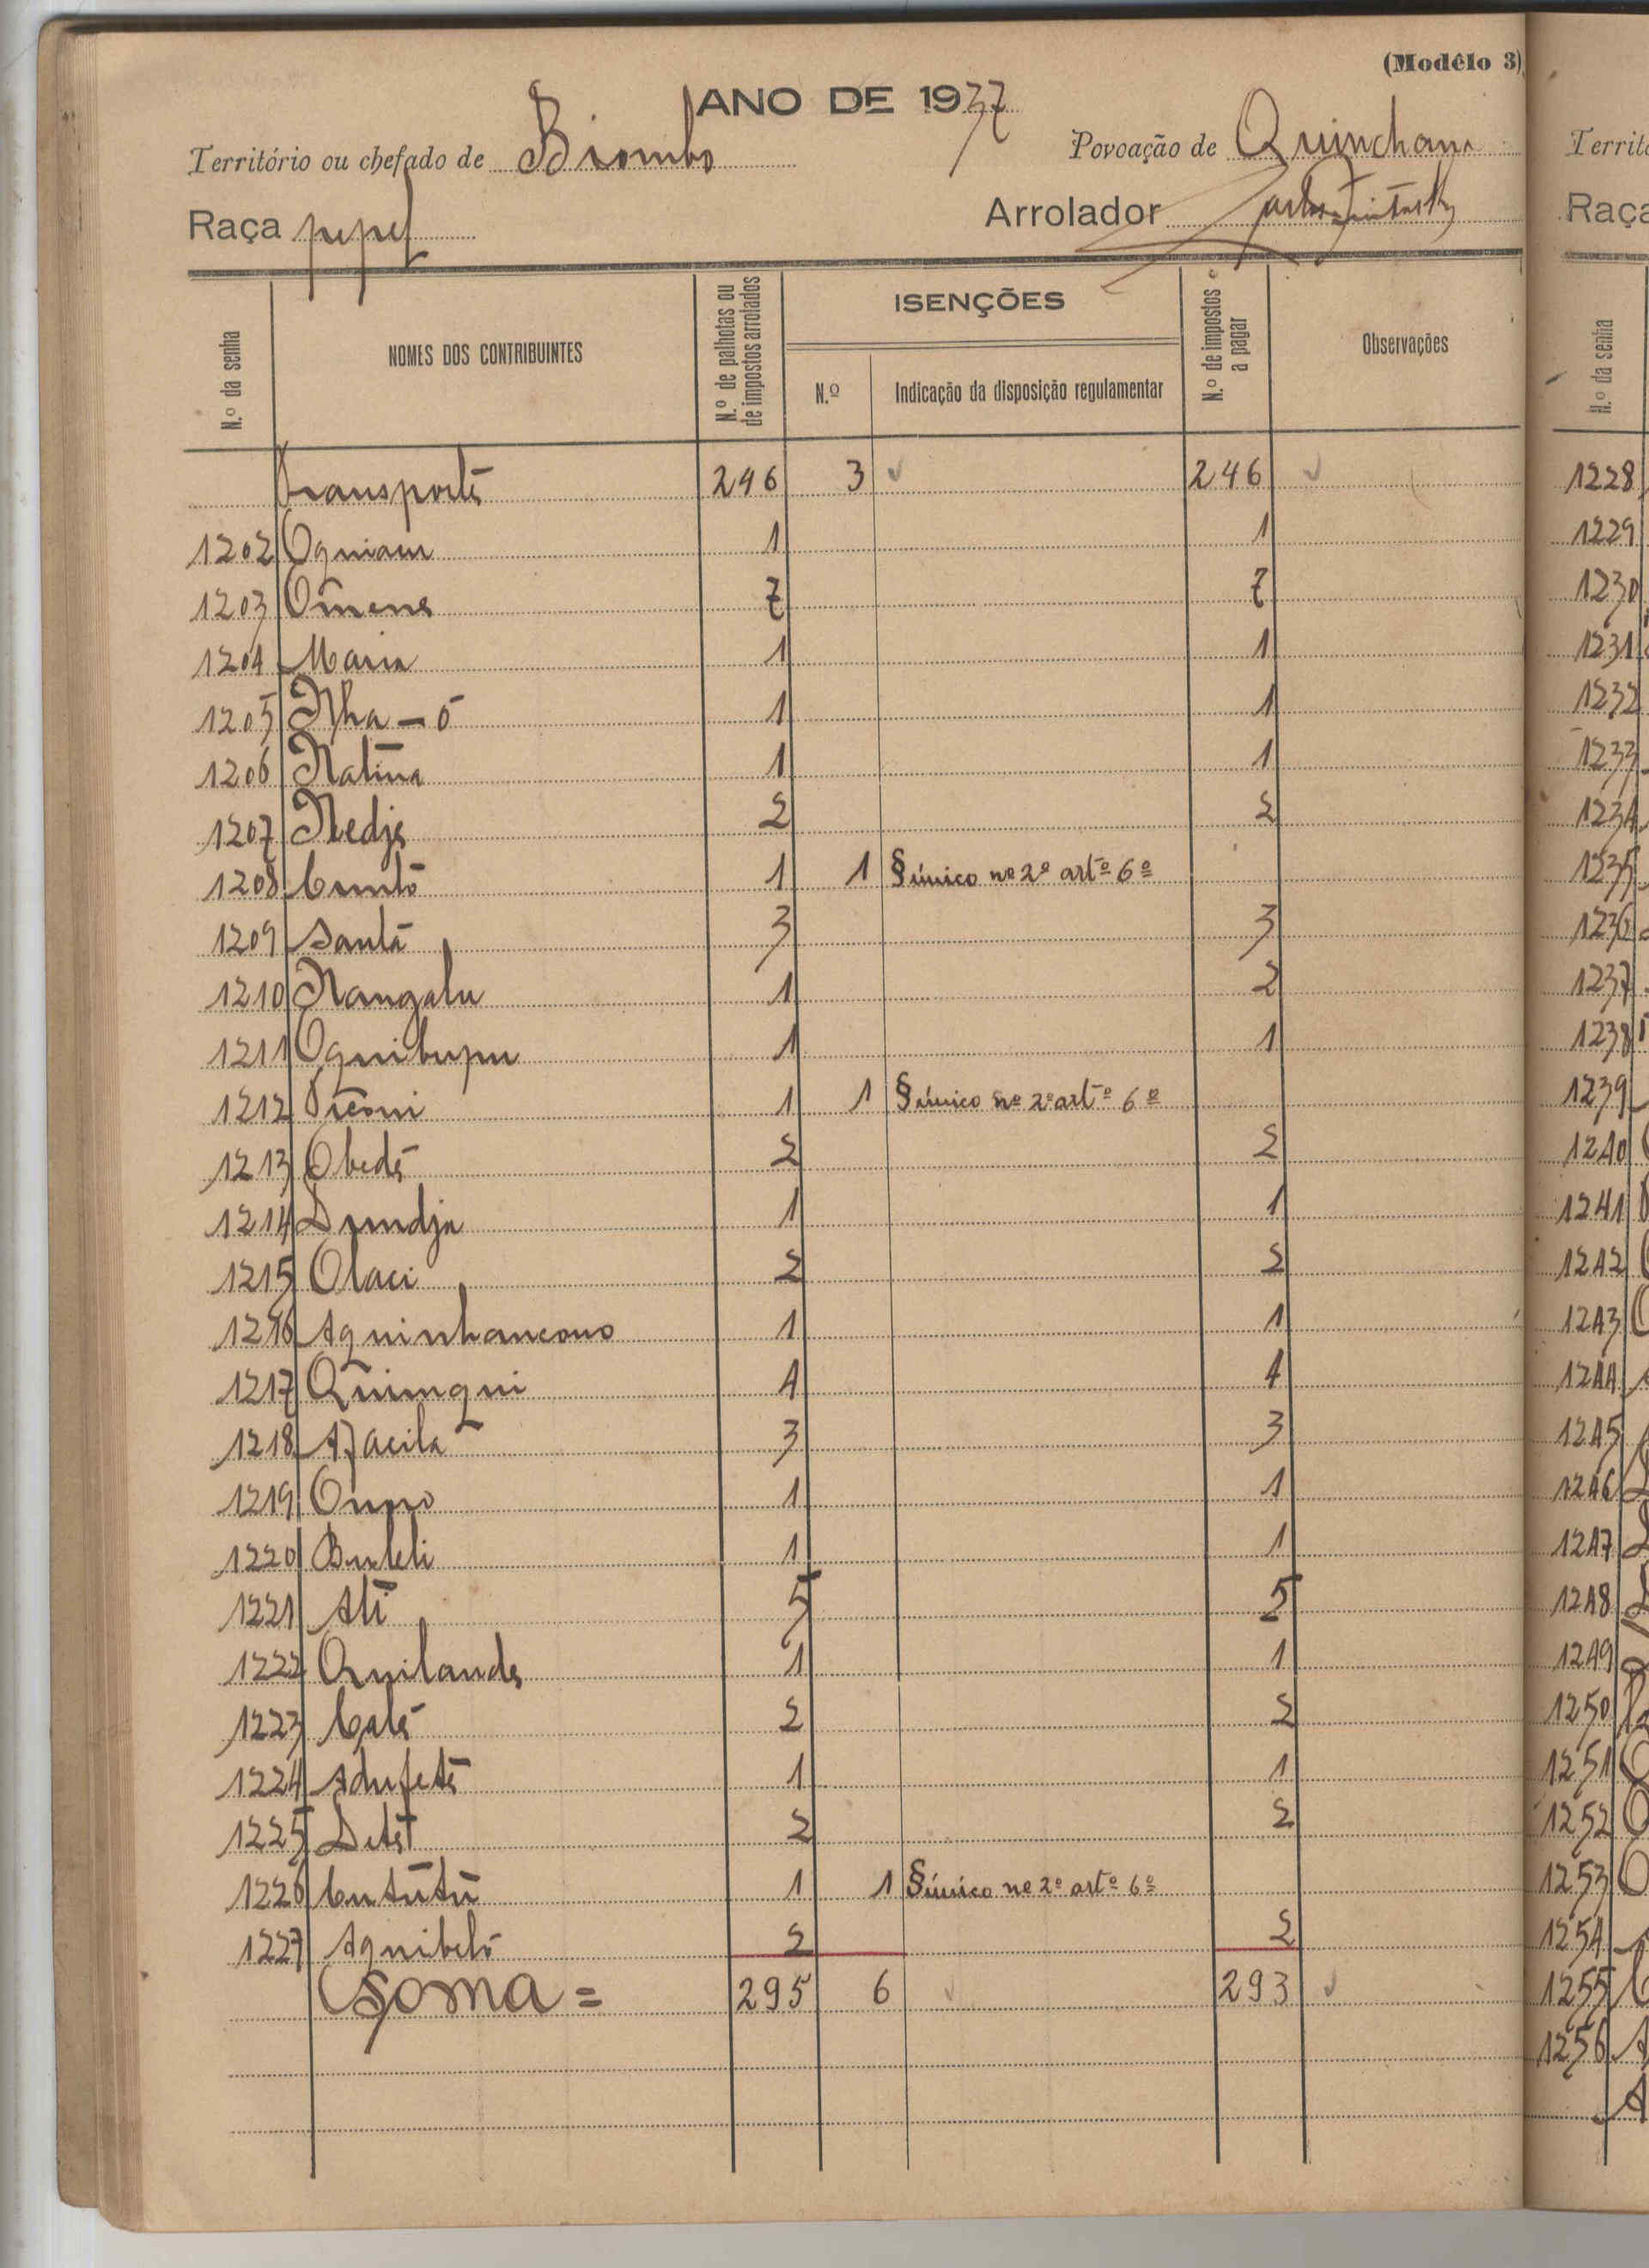 (Modêlo 3)
ANO DE 1937
Território ou chefado de Biombo Povoação de
Raça pepel Arrolador
N.º da senha NOMES DOS CONTRIBUINTES N.º de palhotas ou de impostos arrolados ISENÇÕES N.º Indicação da disposição regulamentar N.º de impostos a pagar Observações
Transporte 246 3 246
1202 1 1
1203 7 7
1204 Maria 1 1
1205 Nha-ó 1 1
1206 Natina 1 1
1207 Nedje 2 2
1208 1 1 § único nº 2º artº 6º
1209 Santá 3 3
1210 Nangalu 1 2
1211 1 1
1212 1 1 § único nº 2º artº 6º
1213 Obedé 2 2
1214 1 1
1215 Olaci 2 2
1216 1 1
1217 Quimqui 4 4
1218 3 3
1219 1 1
1220 1 1
1221 Ati 5 5
1222 Quilande 1 1
1223 2 2
1224 1 1
1225 2 2
1226 Cututú 1 1 § único nº 2º artº 6º
1227 Aquibeló 2 2
Soma = 295 6 293
Territó
Raça
N.º da senha
1228
1229
1230
1231
1232
1233
1234
1235
1236
1237
1238
1239
1240
1241
1242
1243
1244
1245
1246
1247
1248
1249
1250
1251
1252
1253
1254
1255
1256